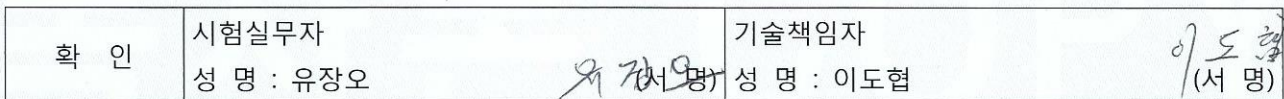 확 인
시험실무자
성 명 : 유장오 유장오 (서 명)
기술책임자
성 명 : 이도협 이도협 (서 명)